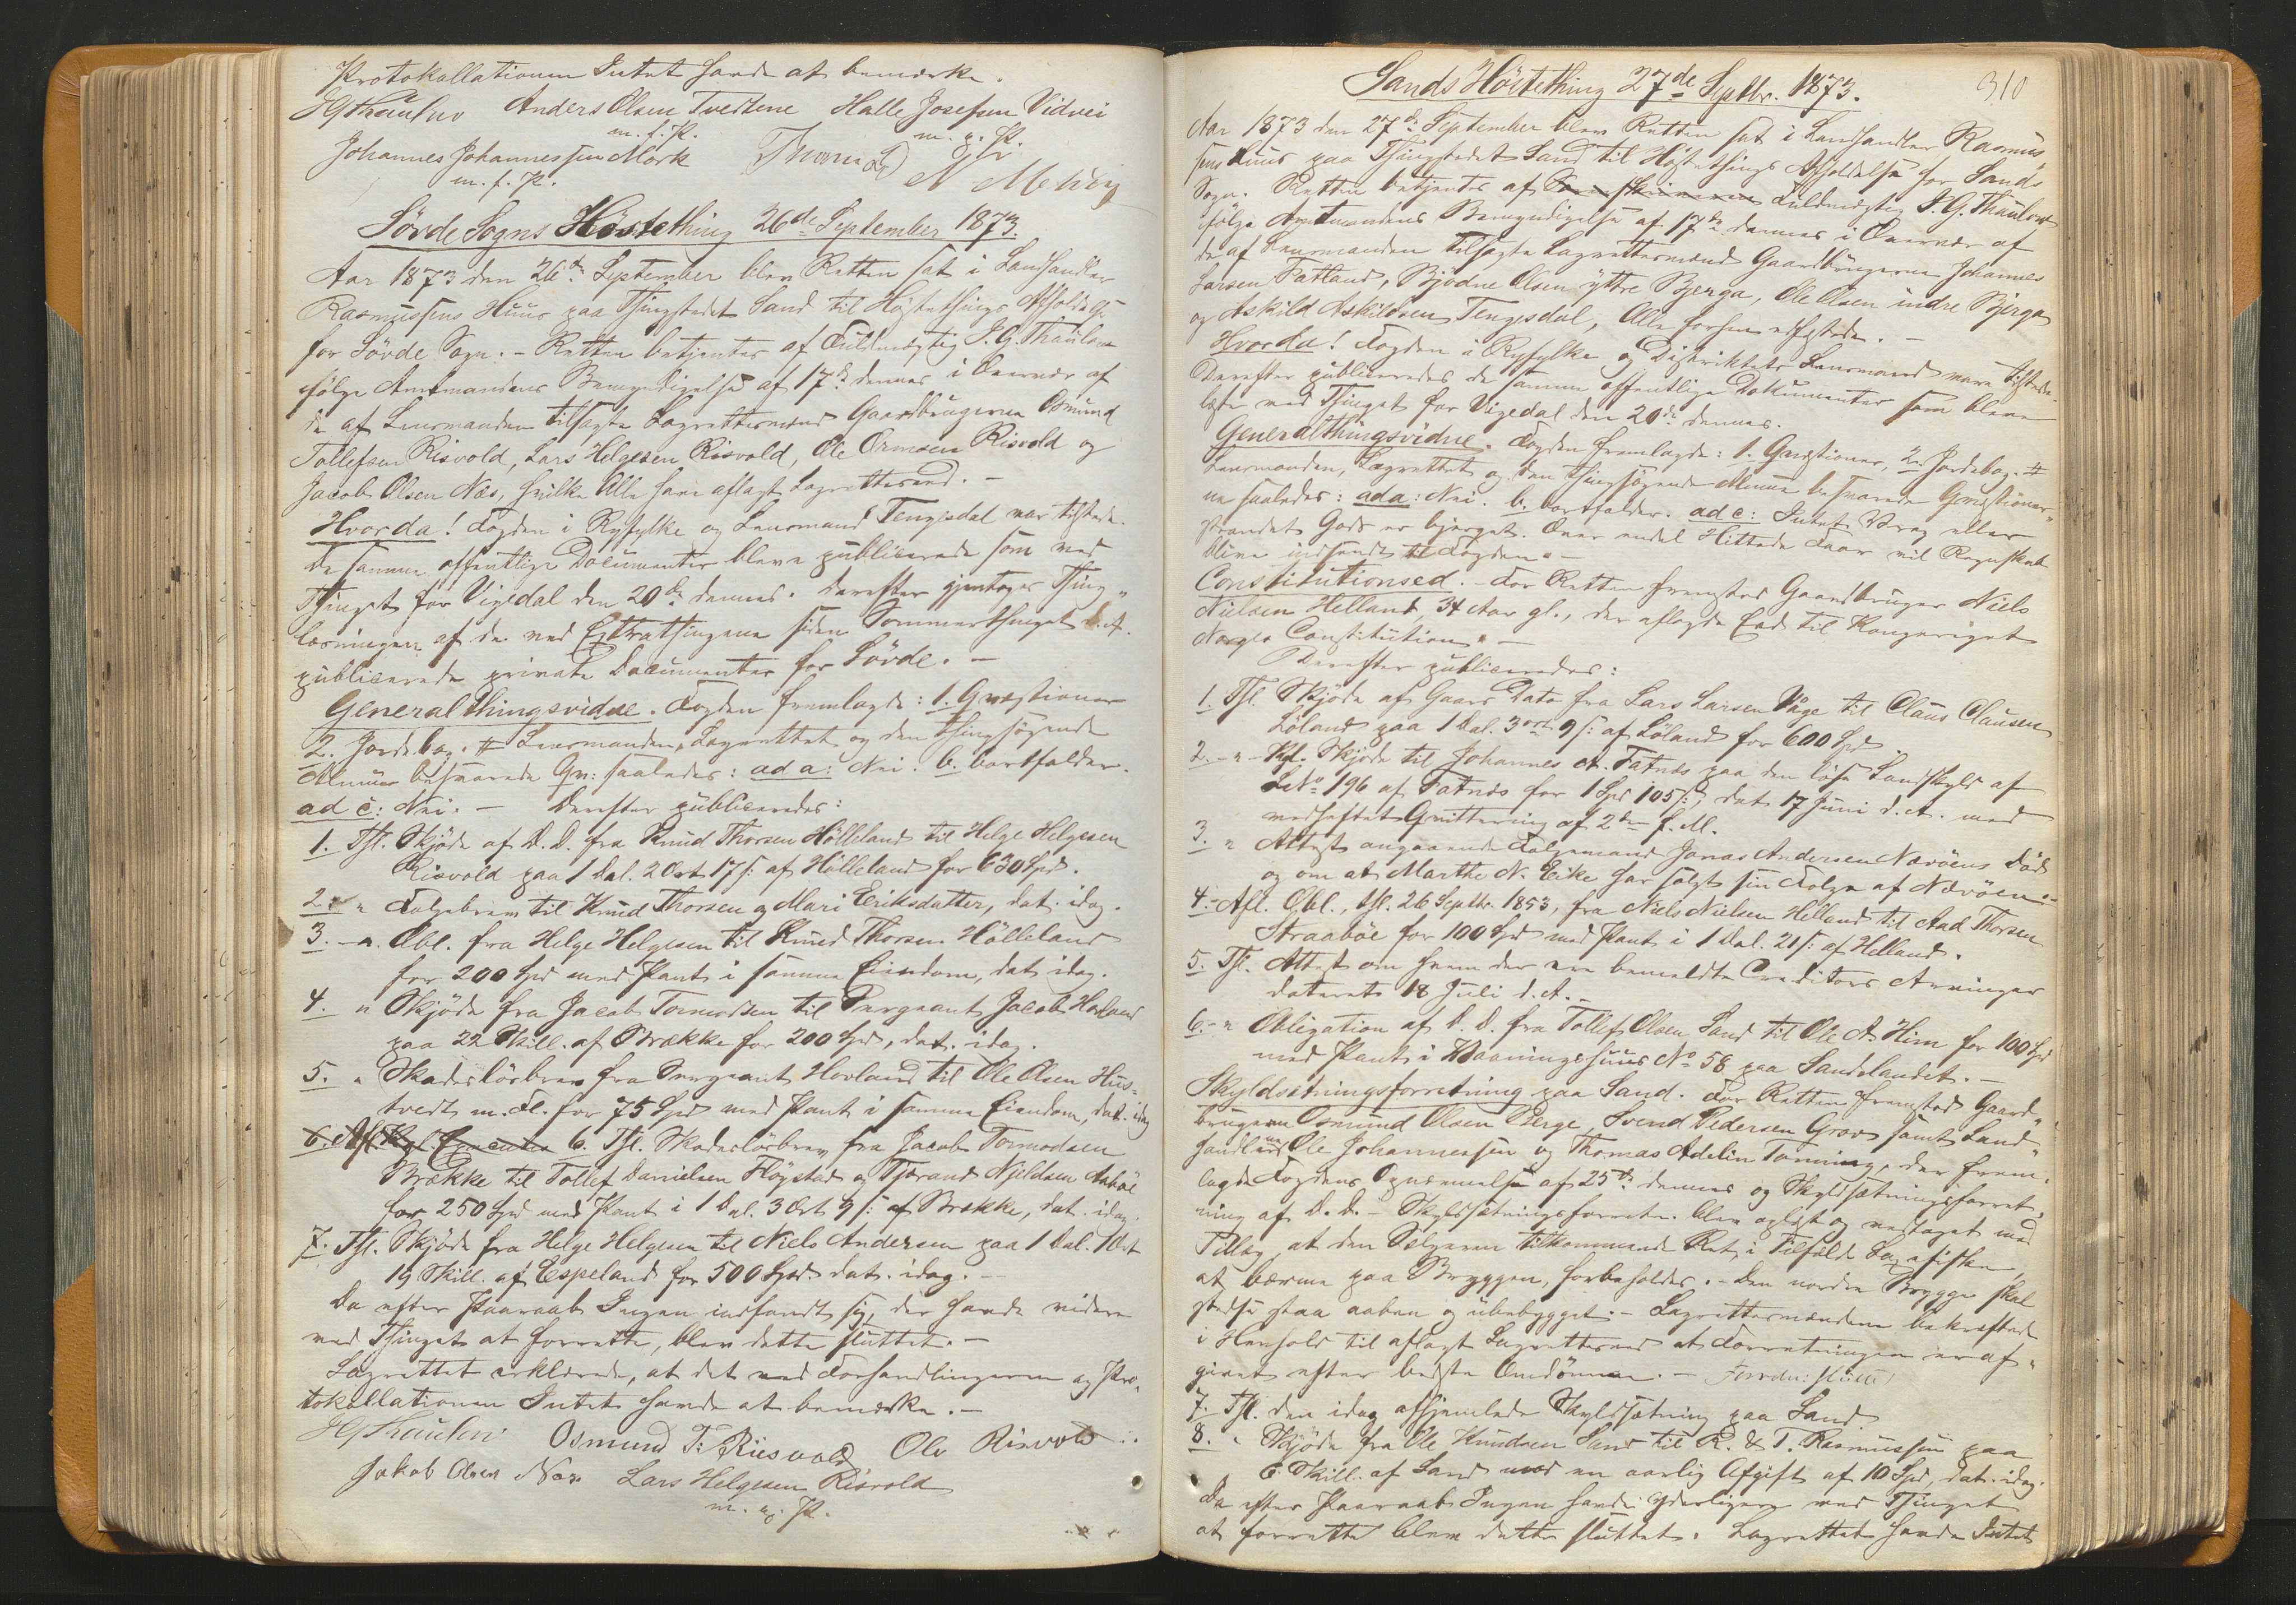 Protokollationen Intet havde at bemærke.
Anders Olsen Tvedtene Halle Josefsen Vidvei
m. f. P. m. p. P.
Johannes Johannessen Mørk
m. f. P.
Søvde Sogns Høstething 26de September 1873.
Aar 1873 den 26de September blev Retten sat i Landhandler
Rasmussens Huus paa Thingstedet Sand til Høstethings Afholdelse
for Søvde Sogn. – Retten betjentes af Fuldmægtig J. G. Thaulow
ifølge Amtmandens Bemyndigelse af 17de dennes i Overvær af
de af Lensmanden tilsagte Lagrettesmænd Gaardbrugerne Osmund
Tollefsen Risvold, Lars Helgesen Risvold, Ole Ormsen Risvold og
Jacob Olsen Næs, hvilke Alle have aflagt Lagrettesed. –
Hvorda! Fogden i Ryfylke og Lensmand Tengesdal var tilstede.
De samme offentlige Documenter bleve publicerede som ved
Thinget for Vigedal den 20de dennes. Derefter gjentoges Thing„
læsningen af de ved Extrathingene siden Sommerthinget d. A.
publicerede private Documenter for Søvde. –
Generalthingsvidne. Fogden fremlagde: 1. Qvæstioner
2. Jordebog. # Lensmanden, Lagrettet og den thingsøgende
Almue besvarede Qv: saaledes: ad a: Nei. b. bortfalder.
ad c: Nei. – Derefter publiceredes:
1. Thl. Skjøde af D. D. fra Knud Thorsen Hølleland til Helge Helgesen
Risvold paa 1 Dal. 2 Ort 17 s: af Hølleland for 630 Spd.
2. – " Folgebrev til Knud Thorsen og Mari Eriksdatter, dat. idag.
3. – " Obl. fra Helge Helgesen til Knud Thorsen Hølleland
for 200 Spd med Pant i samme Eiendom, dat. idag.
4. " Skjøde fra Jacob Tormodsen til Sergeant Jacob Hovland
paa 22 Skill. af Brække for 200 Spd, dat. idag.
5. " Skadesløsbrev fra Sergeant Hovland til Ole Olsen Hus„
tvedt m. Fl. for 75 Spd med Pant i samme Eiendom, dat. idag
6. Thl. Skadesløsbrev fra Jacob Tormodsen
Brække til Tollef Danielsen Høgstad og Tjerand Njeldsen Aabøe
for 250 Spd med Pant i 1 Dal. 3 Ort 9 s: af Brække, dat. idag.
7. Thl. Skjøde fra Helge Helgesen til Niels Andersen paa 1 Dal. 1 Ort
19 Skill. af Espeland for 500 Spd. dat. idag. –
Da efter Paaraab Ingen indfandt sig, der havde videre
ved Thinget at forrette, blev dette sluttet. –
Lagrettet erklærede, at det ved Forhandlingerne og Pro„
tokollationen Intet havde at bemærke. –
Osmund T. Riisvold Ole Risvold
Jakob Olsen Næs Lars Helgesen Risvold
m. p. P.
310
Sands Høstething 27de Septbr. 1873.
Aar 1873 den 27de September blev Retten sat i Landhandler Rasmus„
sens Huus paa Thingstedet Sand til Høstethings Afholdelse for Sands
Sogn. Retten betjentes af Fuldmægtig J. G. Thaulow
ifølge Amtmandens Bemyndigelse af 17de dennes i Overvær af
de af Lensmanden tilsagte Lagrettesmænd Gaardbrugerne Johannes
Larsen Fatland, Bjødne Olsen yttre Bjerga, Ole Olsen indre Bjerga
og Askild Askildsen Tengesdal, Alle forhen edfæstede. –
Hvorda! Fogden i Ryfylke og Distriktets Lensmand vare tilstede.
Derefter publiceredes de samme offentlige Dokumenter som bleve
læste ved Thinget for Vigedal den 20de dennes.
Generalthingsvidne. Fogden fremlagde: 1. Qvæstioner, 2. Jordebog. #
Lensmanden, Lagrettet og den thingsøgende Almue besvarede Qvæstioner„
ne saaledes: ad a: Nei. b. bortfalder. ad c: Intet Vrag eller
strandet Gods er bjerget. Over endel Hittede Faar vil Regnskab
blive indsendt til Fogden. –
Constitutionsed. – For Retten fremstod Gaardbruger Niels
Nielsen Helland, 34 Aar gl., der aflagde Eed til Kongeriget
Norges Constitution. –
Derefter publiceredes:
1. Thl. Skjøde af Gaars Dato fra Lars Larsen Våge til Claus Clausen
Løland paa 1 Dal. 3 ort 9 s: af Løland for 600 Spd
2. – " – Kgl. Skjøde til Johannes A. Fatnæs paa den løse Landskyld af
LNo 196 af Fatnæs for 1 Spd 105 s:, dat. 17 Juni d. A. med
vedheftet Qvittering af 2den f. M.
3. " Attest angaaende Folgemand Jonas Andersen Nævøens Død
og om at Marthe N. Eike har solgt sin Folge af Nævøen –
4. – Afl. Obl., thl. 26 Septbr. 1853, fra Niels Nielsen Helland til Aad Thorsen
Straabøe for 100 Spd med Pant i 1 Dal. 21 s: af Helland.
5. Thl. Attest om hvem der ere bemeldte Creditors Arvinger
dateret 18 Juli d. A. –
6. – " Obligation af D. D. fra Tollef Olsen Sand til Ole A. Hiim for 100 Spd
med Pant i Vaaningshuus No 58 paa Sandslandet. –
Skyldsætningsforretning paa Sand. For Retten fremstod Gaard„
brugerne Osmund Olsen Berge, Svend Pedersen Grov samt Land„
handlerne Ole Johannessen og Thomas Adelin Tanning, der frem„
lagde Fogdens Opnævnelse af 25de dennes og Skyldsætningsforret„
ning af D. D. – Skyldsætningsforretn. blev oplæst og vedtaget med
Tillæg, at den Sælgeren tilkommende Ret, i Tilfælde Laxefisken
at bærme paa Bryggen, forbeholdes. – Den nordre Brygge skal
stedse staa aaben og ubebygget. – Lagrettesmændene bekræftede
i Henhold til aflagt Lagrettesed at Forretningen er af„
givet efter bedste Omdømme. –
7. Thl. den idag afhjemlede Skyldsætning paa Sand
8. " Skjøde fra Ole Knudsen Sand til R. & T. Rasmussen paa
6 Skill. af Sand mod en aarlig Afgift af 10 Spd, dat. idag.
Da efter Paaraab Ingen havde yderligere ved Thinget
at forrette blev dette sluttet. Lagrettet havde Intet